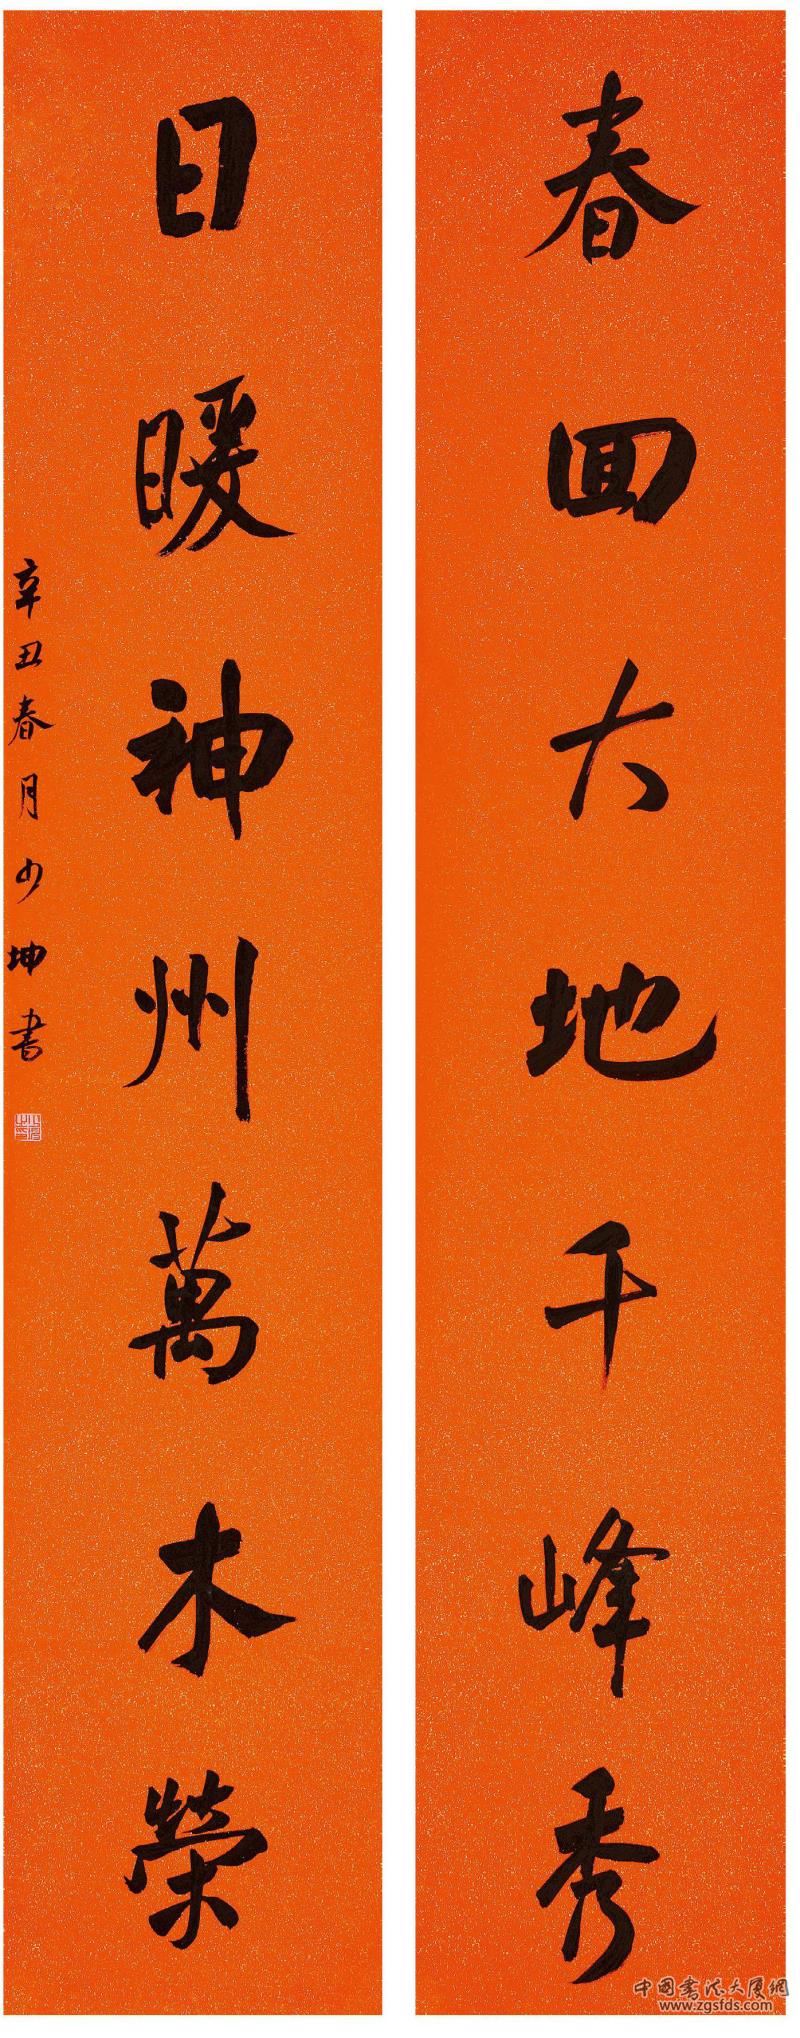 春回大地千峰秀
日暖神州萬木榮
辛丑春月少坤書
中国書法大厦網
www.zgsfds.com